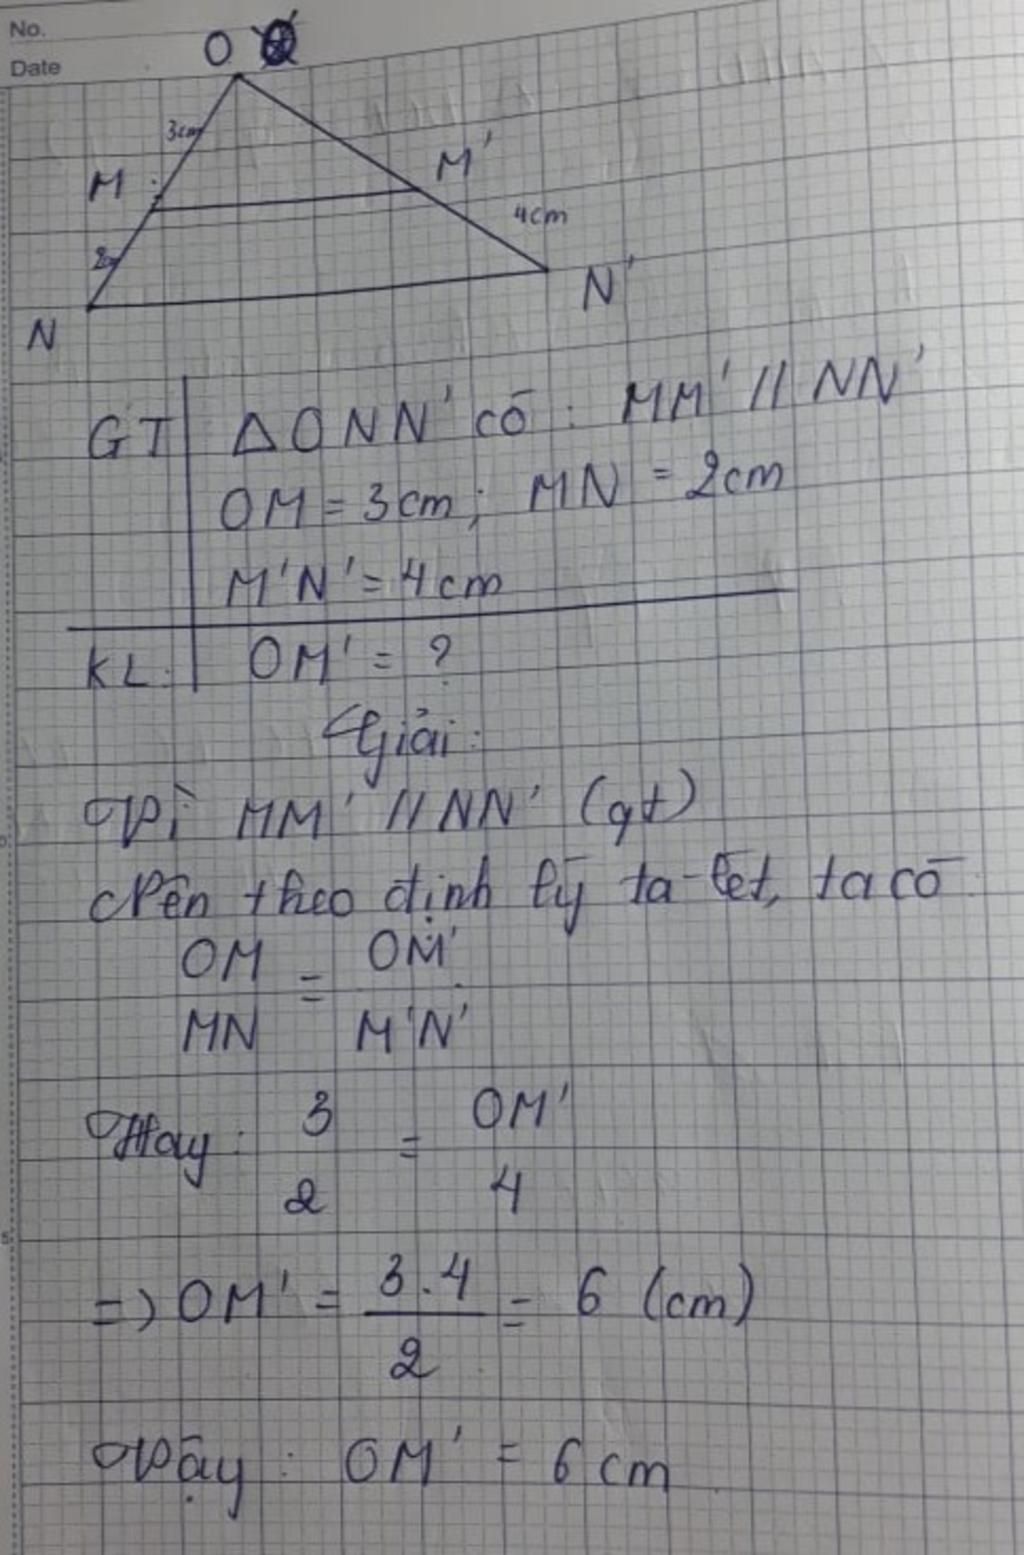 No.
Date
O
3cm
M
M'
4cm
2cm
N'
N
GT ΔONN' có : MM' // NN'
OM = 3cm; MN = 2cm
M'N' = 4cm
KL: OM' = ?
Giải:
Vì MM' // NN' (gt)
Nên theo định lý ta-lét, ta có
OM/MN = OM'/M'N'
Hay: 3/2 = OM'/4
=> OM' = 3.4/2 = 6 (cm)
Vậy: OM' = 6cm